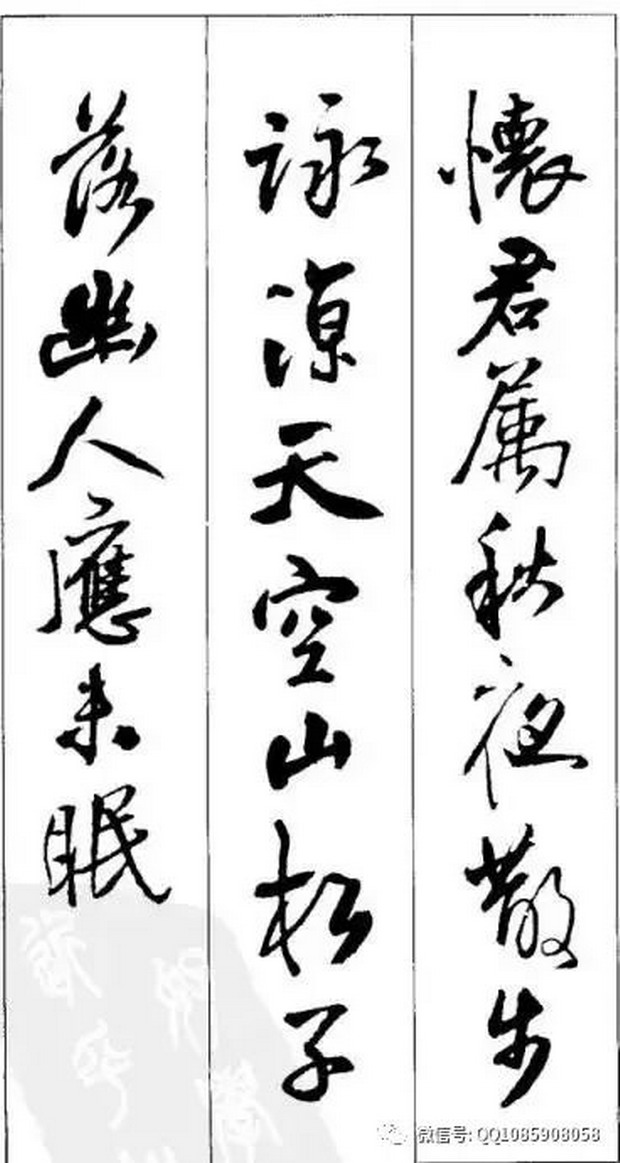 懷君属秋夜散步
詠凉天空山松子
落幽人應未眠
微信号: QQ1085908058